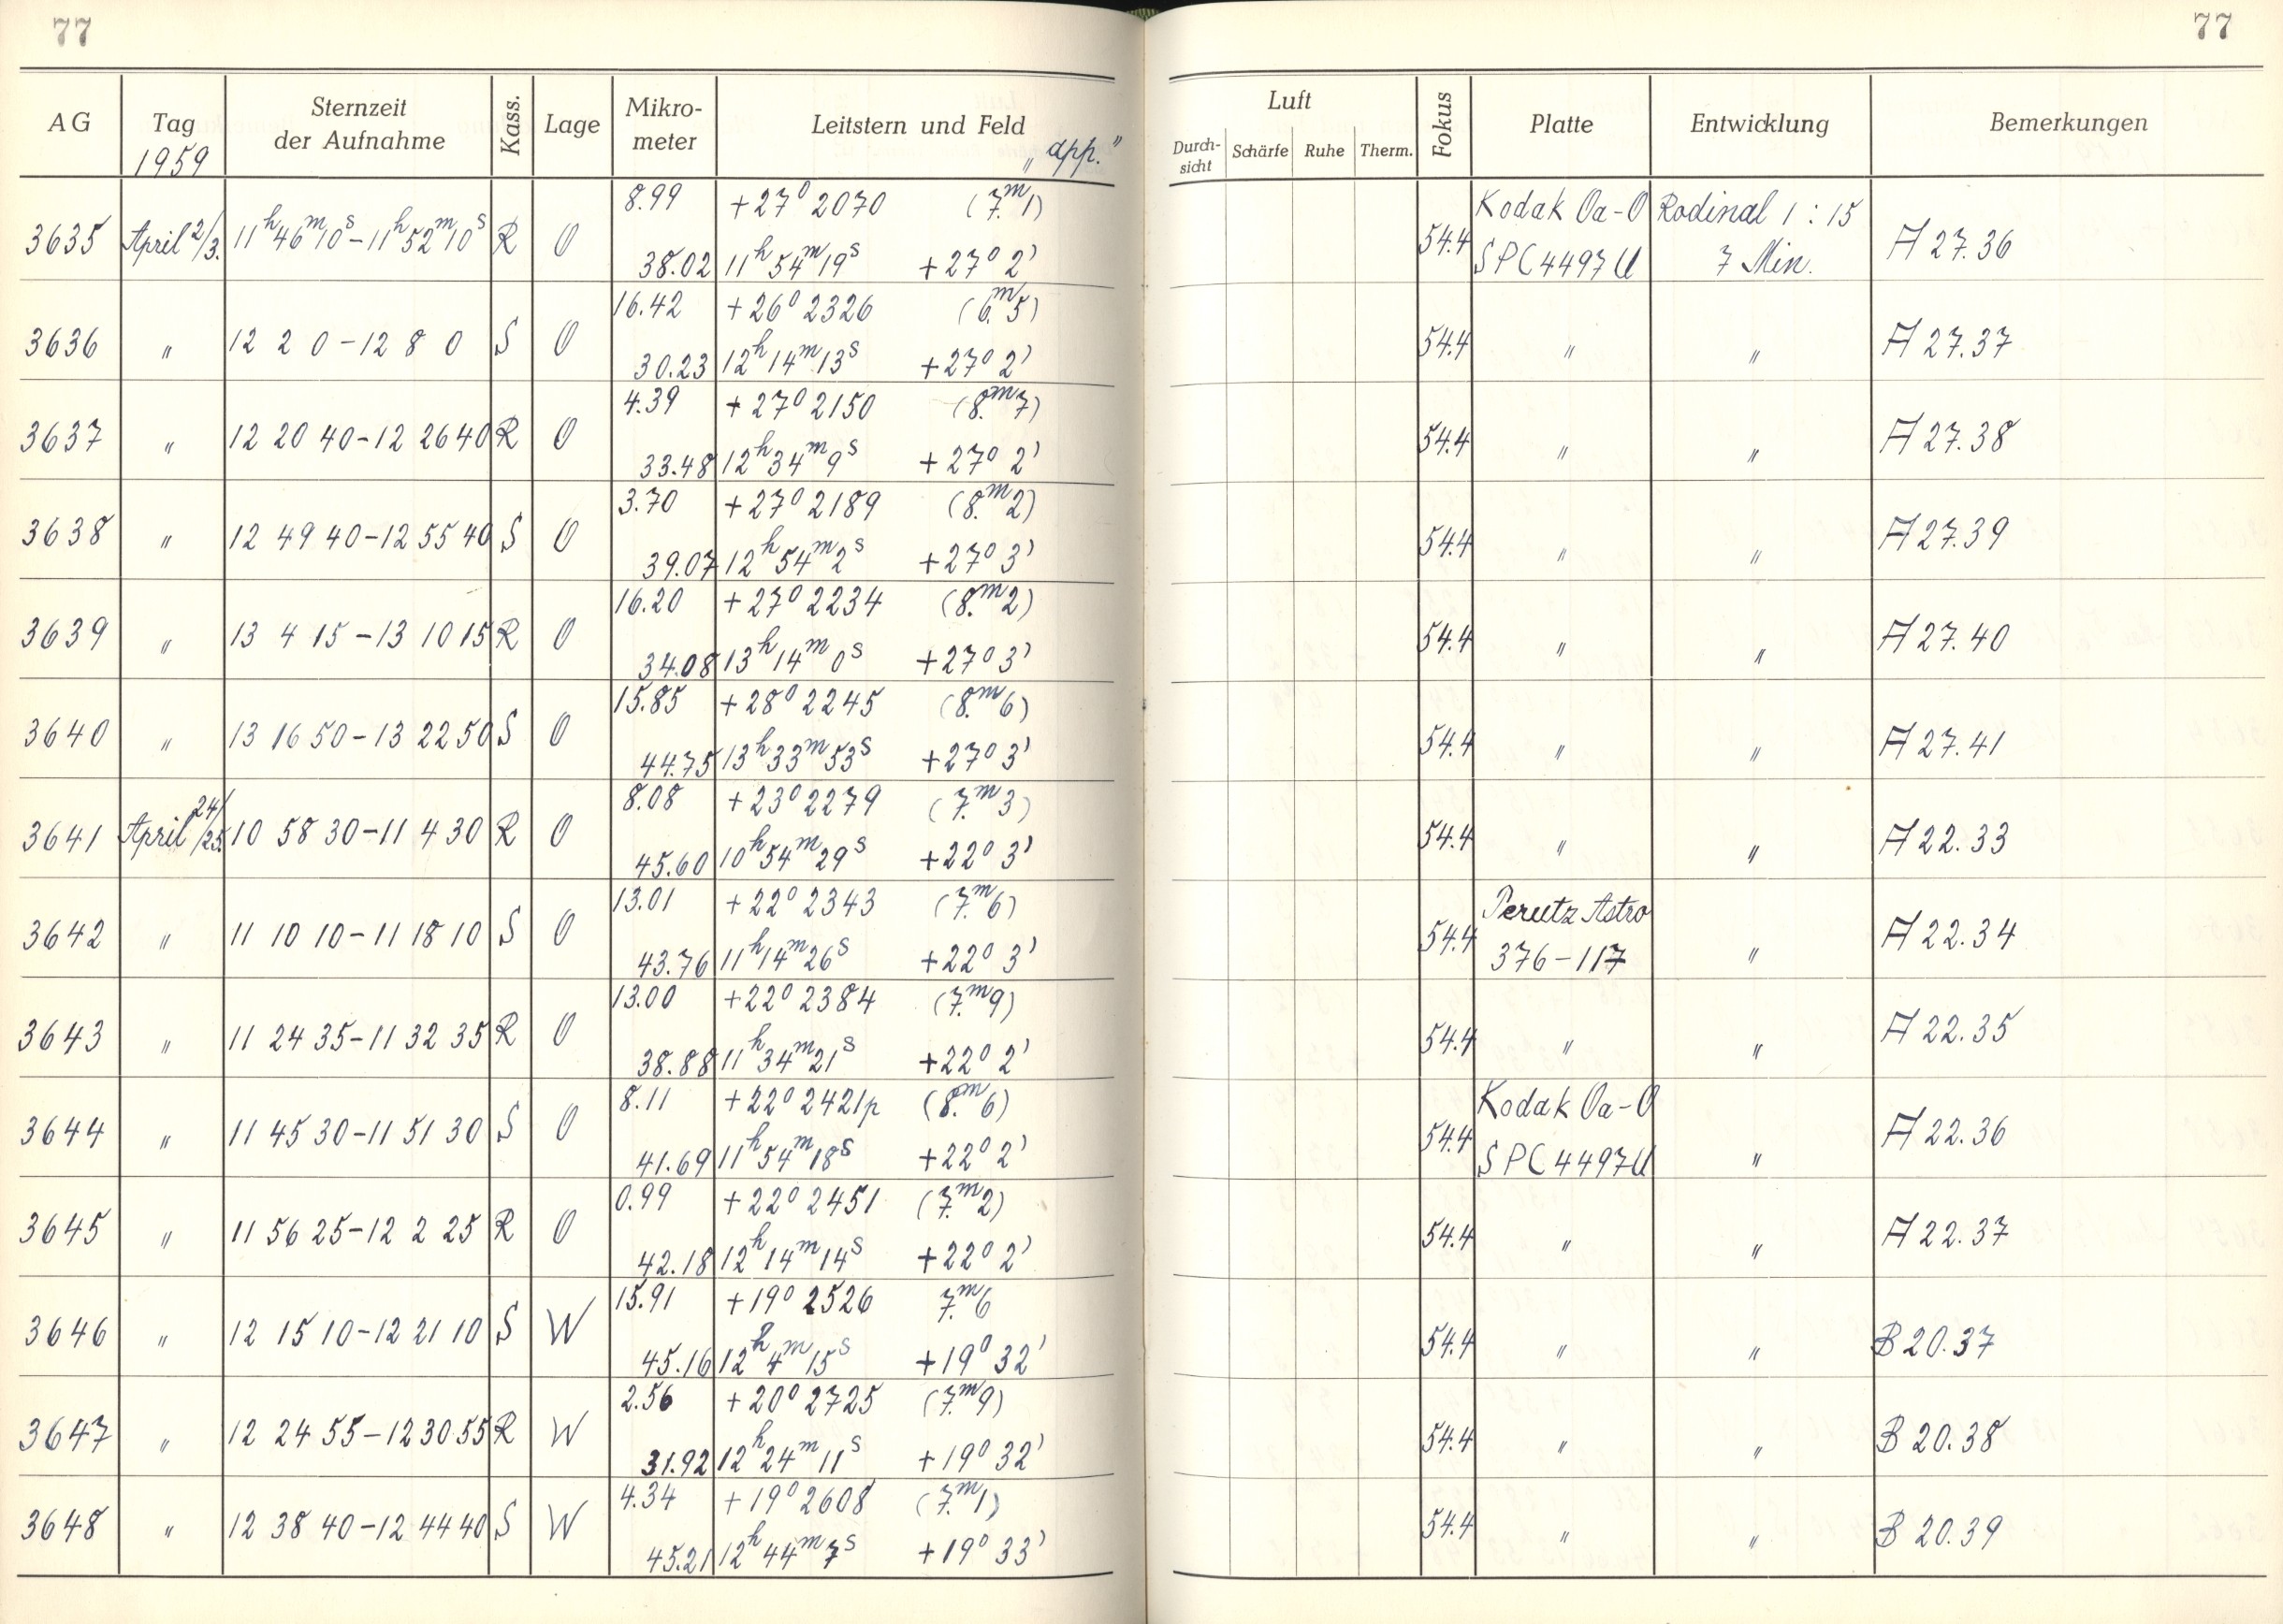 77
77
AG Tag 1959 Sternzeit der Aufnahme Kass. Lage Mikro-meter Leitstern und Feld „app.“
Luft Durch-sicht Schärfe Ruhe Therm. Fokus Platte Entwicklung Bemerkungen
8.99 +27° 2070 (7.ᵐ1) Kodak Oa-O Rodinal 1:15
3635 April 2/3. 11ʰ46ᵐ10ˢ-11ʰ52ᵐ10ˢ R O 54.4 A 27.36
38.02 11ʰ54ᵐ19ˢ +27° 2' SPC4497U 7 Min.
16.42 +26° 2326 (6.ᵐ5)
3636 " 12 2 0-12 8 0 S O 54.4 " " A 27.37
30.23 12ʰ14ᵐ13ˢ +27° 2'
4.39 +27° 2150 (8.ᵐ7)
3637 " 12 20 40-12 26 40 R O 54.4 " " A 27.38
33.48 12ʰ34ᵐ9ˢ +27° 2'
3.70 +27° 2189 (8.ᵐ2)
3638 " 12 49 40-12 55 40 S O 54.4 " " A 27.39
39.07 12ʰ54ᵐ2ˢ +27° 3'
16.20 +27° 2234 (8.ᵐ2)
3639 " 13 4 15-13 10 15 R O 54.4 " " A 27.40
34.08 13ʰ14ᵐ0ˢ +27° 3'
15.85 +28° 2245 (8.ᵐ6)
3640 " 13 16 50-13 22 50 S O 54.4 " " A 27.41
44.75 13ʰ33ᵐ53ˢ +27° 3'
8.08 +23° 2279 (7.ᵐ3)
3641 April 24/25. 10 58 30-11 4 30 R O 54.4 " " A 22.33
45.60 10ʰ54ᵐ29ˢ +22° 3'
13.01 +22° 2343 (7.ᵐ6) Perutz Astro
3642 " 11 10 10-11 18 10 S O 54.4 " A 22.34
43.76 11ʰ14ᵐ26ˢ +22° 3' 376-117
13.00 +22° 2384 (7.ᵐ9)
3643 " 11 24 35-11 32 35 R O 54.4 " " A 22.35
38.88 11ʰ34ᵐ21ˢ +22° 2'
8.11 +22° 2421p (8.ᵐ6) Kodak Oa-O
3644 " 11 45 30-11 51 30 S O 54.4 " A 22.36
41.69 11ʰ54ᵐ18ˢ +22° 2' SPC4497U
0.99 +22° 2451 (7.ᵐ2)
3645 " 11 56 25-12 2 25 R O 54.4 " " A 22.37
42.18 12ʰ14ᵐ14ˢ +22° 2'
15.91 +19° 2526 7.ᵐ6
3646 " 12 15 10-12 21 10 S W 54.4 " " B 20.37
45.16 12ʰ4ᵐ15ˢ +19° 32'
2.56 +20° 2725 (7.ᵐ9)
3647 " 12 24 55-12 30 55 R W 54.4 " " B 20.38
31.92 12ʰ24ᵐ11ˢ +19° 32'
4.34 +19° 2608 (7.ᵐ1)
3648 " 12 38 40-12 44 40 S W 54.4 " " B 20.39
45.21 12ʰ44ᵐ7ˢ +19° 33'